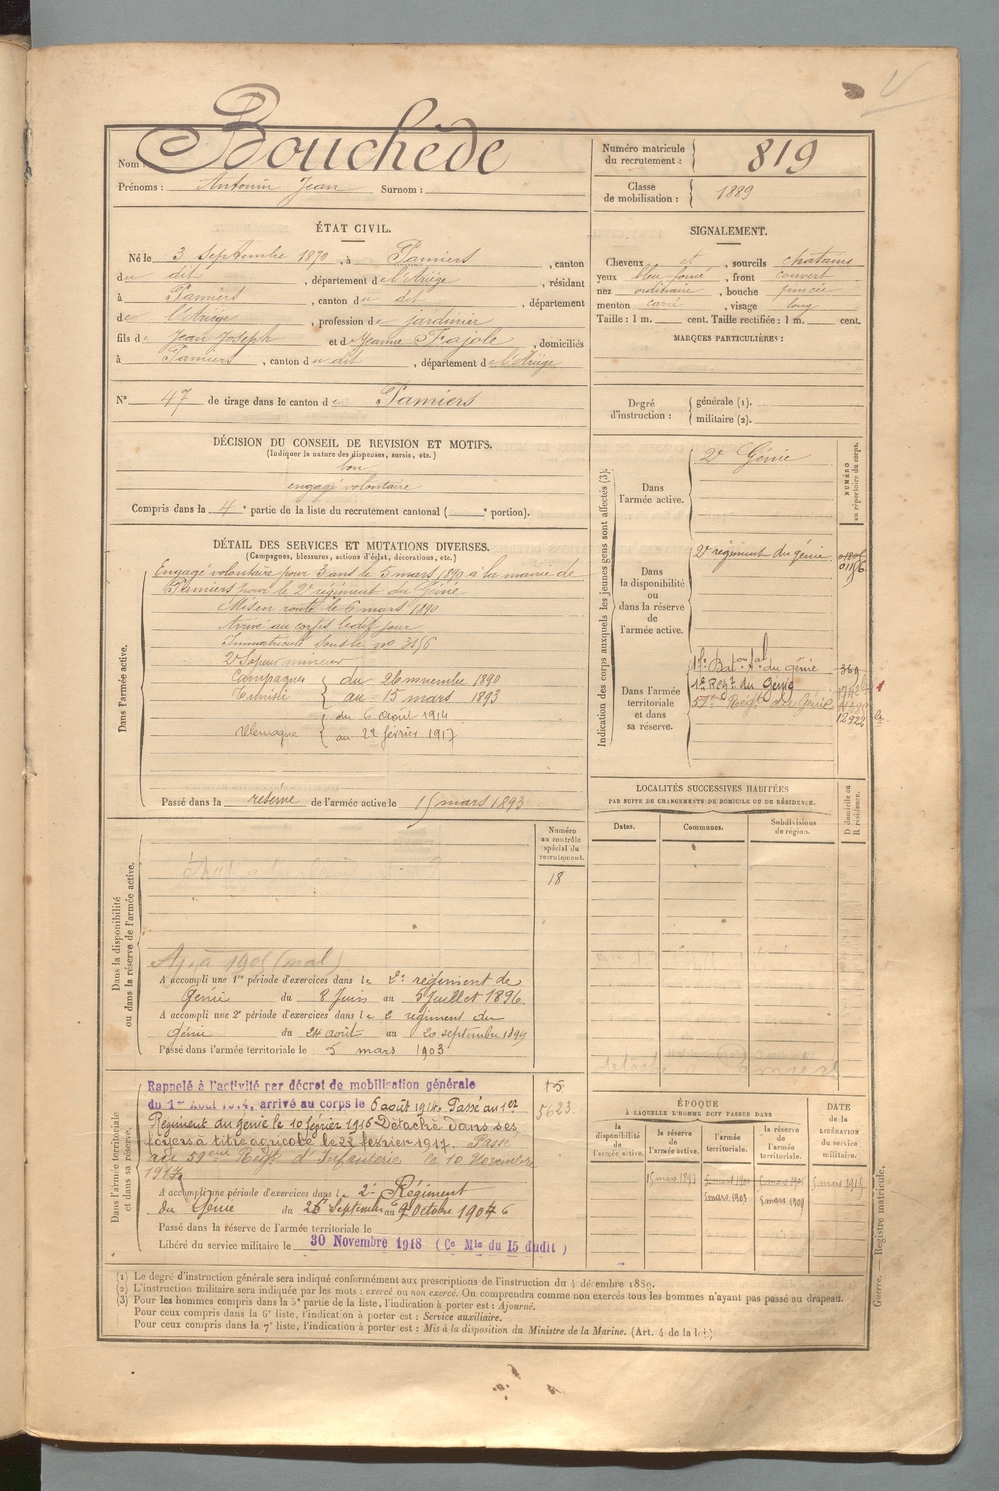 Nom : Bouchède
Prénoms : Antonin Jean Surnom :
Numéro matricule du recrutement : 819
Classe de mobilisation : 1889
ÉTAT CIVIL.
Né le 3 Septembre 1870, à Pamiers, canton
du dit, département de l'Ariège, résidant
à Pamiers, canton du dit, département
de l'Ariège, profession de jardinier
fils de Jean Joseph et de Jeanne Fajole, domiciliés
à Pamiers, canton du dit, département de l'Ariège
N° 47 de tirage dans le canton de Pamiers
SIGNALEMENT.
Cheveux et, sourcils chatains
yeux bleu foncé, front couvert
nez ordinaire, bouche pincée
menton carré, visage long
Taille : 1 m. cent. Taille rectifiée : 1 m. cent.
MARQUES PARTICULIÈRES :
Degré d'instruction : générale (1).
militaire (2).
DÉCISION DU CONSEIL DE REVISION ET MOTIFS.
(Indiquer la nature des dispenses, sursis, etc.)
bon
engagé volontaire
Compris dans la 4e partie de la liste du recrutement cantonal ( e portion).
DÉTAIL DES SERVICES ET MUTATIONS DIVERSES.
(Campagnes, blessures, actions d'éclat, décorations, etc.)
Dans l'armée active.
Engagé volontaire pour 3 ans le 5 mars 1890 à la mairie de
Pamiers pour le 2e régiment du Génie
Mis en route le 6 mars 1890
Arrivé au corps ledit jour
Immatriculé sous le no 3156
2e Sapeur mineur
Campagnes du 26 novembre 1890
Tunisie au 15 mars 1893
du 6 août 1914
Allemagne au 22 février 1917
Passé dans la réserve de l'armée active le 15 mars 1893
Indication des corps auxquels les jeunes gens sont affectés (3).
NUMÉRO au répertoire du corps.
Dans l'armée active.
2e Génie
Dans la disponibilité ou dans la réserve de l'armée active.
2e régiment du génie
Dans l'armée territoriale et dans sa réserve.
du génie 369
1er Regt du Génie
12922
LOCALITÉS SUCCESSIVES HABITÉES
PAR SUITE DE CHANGEMENTS DE DOMICILE OU DE RÉSIDENCE.
Dates. Communes. Subdivisions de région. D domicile ou R résidence.
Dans la disponibilité ou dans la réserve de l'armée active.
Numéro au contrôle spécial du recrutement.
18
A accompli une 1re période d'exercices dans le 2e régiment de
Génie du 8 Juin au 5 Juillet 1896.
A accompli une 2e période d'exercices dans le 2 régiment du
génie du 24 août au 20 septembre 1899
Passé dans l'armée territoriale le 5 mars 1903
Dans l'armée territoriale et dans sa réserve.
Rappelé à l'activité par décret de mobilisation générale
du 1er Août 1914, arrivé au corps le 6 août 1914. Passé au 1er
Régiment du Génie le 10 février 1916 Détaché dans ses
foyers à titre agricole le 22 février 1917. Passé
au 59ème Regt d'Infanterie le 10 Novembre
1917.
5623
A accompli une période d'exercices dans le 2e Régiment
du Génie du 26 Septembre au Octobre 1906
Passé dans la réserve de l'armée territoriale le
Libéré du service militaire le 30 Novembre 1918 (Ce Mle du 15 dudit)
ÉPOQUE
À LAQUELLE L'HOMME DOIT PASSER DANS
la disponibilité de l'armée active. la réserve de l'armée active. l'armée territoriale. la réserve de l'armée territoriale.
DATE de la LIBÉRATION du service militaire.
15 mars 1893
5 mars 1903 5 mars 1909
5 mars 1915
(1) Le degré d'instruction générale sera indiqué conformément aux prescriptions de l'instruction du 4 décembre 1889.
(2) L'instruction militaire sera indiquée par les mots : exercé ou non exercé. On comprendra comme non exercés tous les hommes n'ayant pas passé au drapeau.
(3) Pour les hommes compris dans la 5e partie de la liste, l'indication à porter est : Ajourné.
Pour ceux compris dans la 6e liste, l'indication à porter est : Service auxiliaire.
Pour ceux compris dans la 7e liste, l'indication à porter est : Mis à la disposition du Ministre de la Marine. (Art. 4 de la loi.)
Guerre. — Registre matricule.